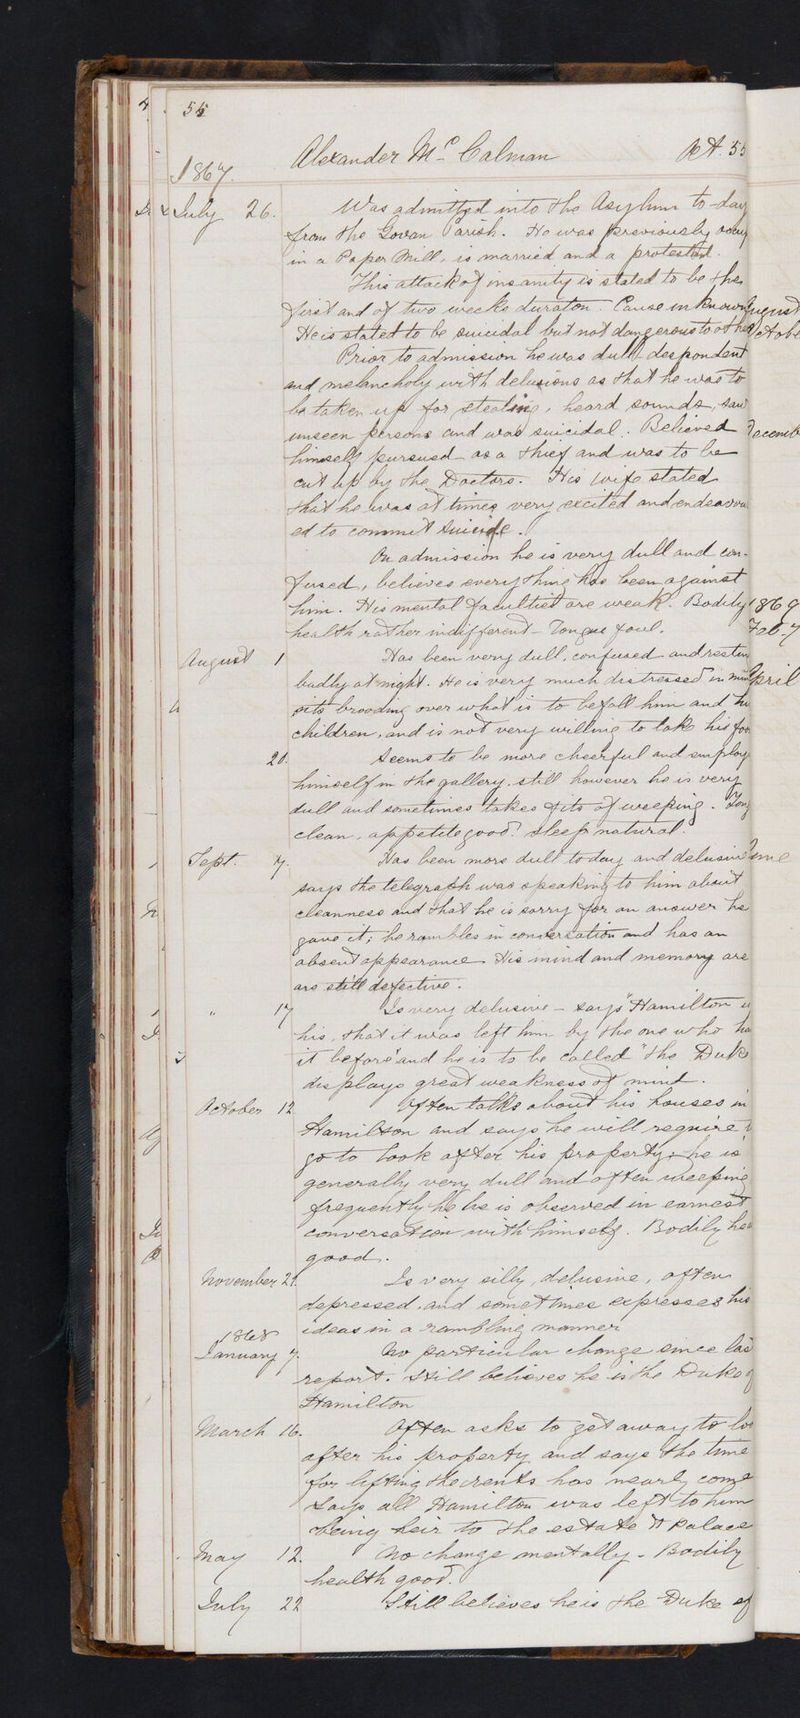 55
Alexander Mc Calman Aet. 55
1867.
July 26. Was admitted into the Asylum to-day
from the Govan Parish. He was previously
in a Paper Mill, is married and a protestant.
This attack of insanity is stated to be the
first and of two weeks duraton. Cause unknown
He is stated to be suicidal but not dangerous to othe
Prior to admission he was dull despondent
and melancholy with delusions as that he was to
be taken up for stealing, heard sounds, saw
unseen persons and was suicidal. Believed
himself pursued as a thief and was to be
cut up by the Doctors. His wife stated
that he was at times very excited and endeavou
ed to commit suicide.
On admission he is very dull and con-
fused, believes everything has been against
him. His mental faculties are weak. Bodily
health rather indifferent - Tongue foul.
August 1 Has been very dull, confused and restless
badly at night. He is very much distressed in min
sits brooding over what is to befall him and his
children, and is not very willing to take his foo
20. Seems to be more cheerful and employ
himself in the gallery. still however he is very
dull and sometimes takes fits of weeping. Tong
clean, appetite good. Sleep natural.
Sept. 7. Has been more dull today and delusive
says the telegraph was speaking to him about
cleanness and that he is sorry for an answer he
gave it; he rambles in conversation and has an
absent appearance His mind and memory are
are still defective.
" 17 Is very delusive - says "Hamilton is
his, that it was left him by the one who ha
it before" and he is to be called "the Duke
displays great weakness of mind.
October 12 Often talks about his houses in
Hamilton and says he will require
go to look after his property; he is
generally very dull and often weeping
frequently he is observed in earnest
conversation with himself. Bodily hea
good.
November 21. Is very silly, delusive, often
depressed, and sometimes expresses his
ideas in a rambling manner
1868
January 7. No particular change since las
report. Still believes he is the Duke of
Hamilton
March 16. Often asks to get away to loo
after his property and says the time
for lifting the rents has nearly come
Says all Hamilton was left to him
being heir to the estate & palace
May 12. No change mentally - Bodily
health good.
July 22 Still believes he is the Duke of
ugust
ctobe
Decemb
1869
Feb. 7
April
June